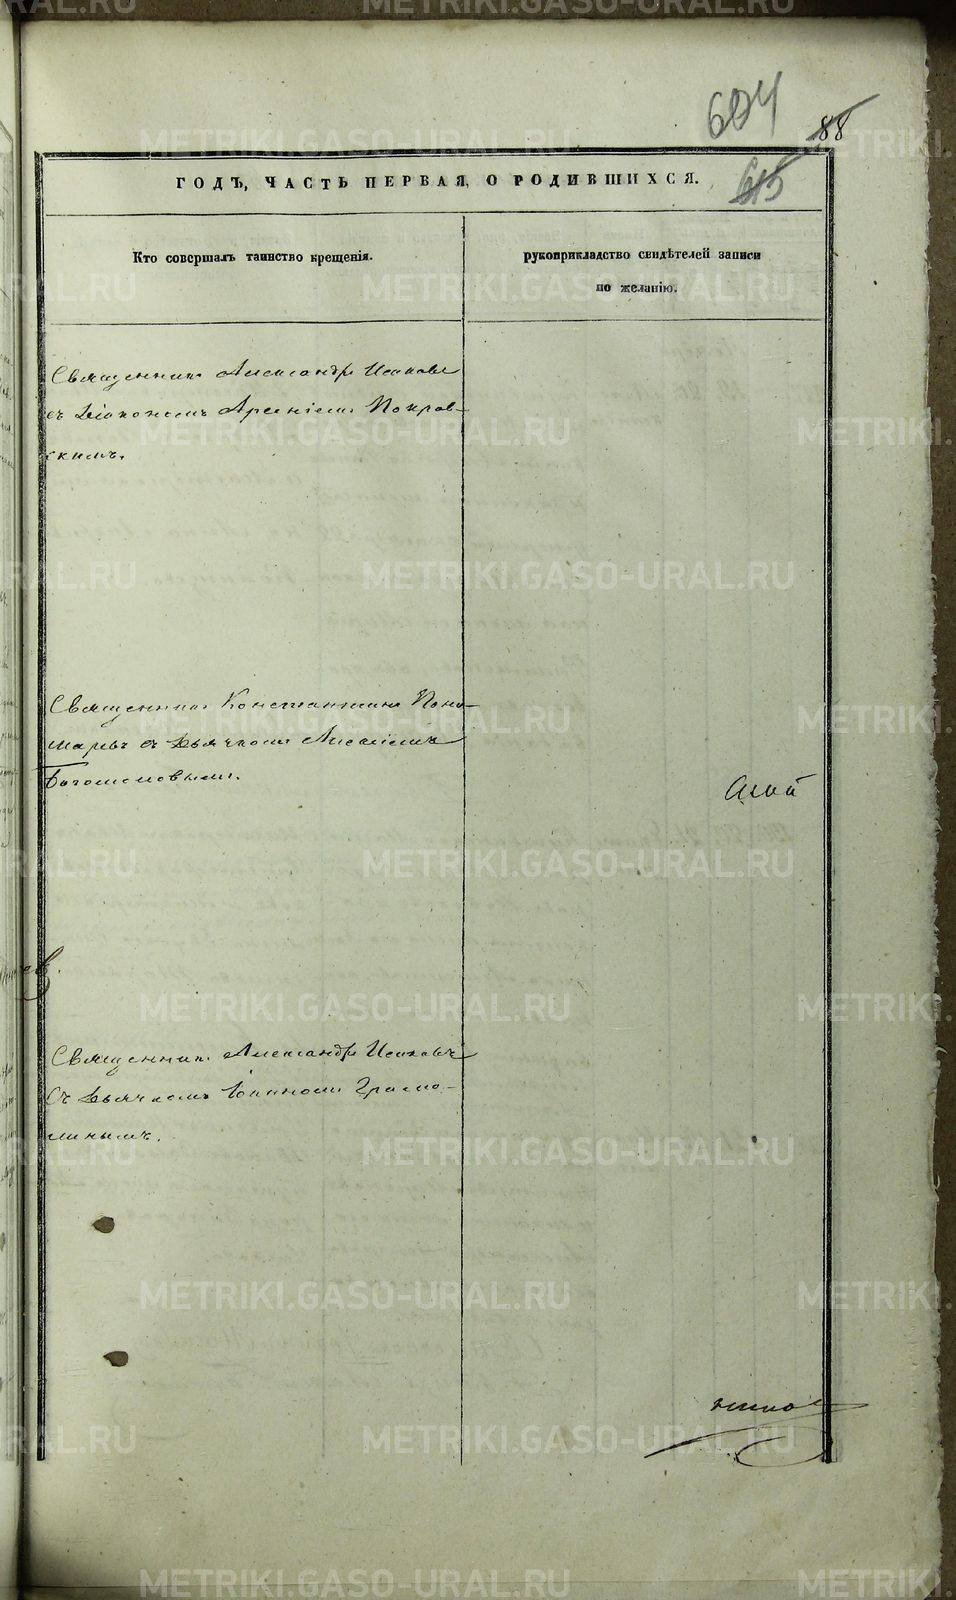 604
88
615
ГОДЪ, ЧАСТЬ ПЕРВАЯ, О РОДИВШИХСЯ.
Кто совершалъ таинство крещенія.
рукоприкладство свидѣтелей записи
по желанію.
Священникъ Александръ Исаковъ
съ Діакономъ Арсеніемъ Покров-
скимъ.
Священникъ Константинъ Поно-
маревъ съ Дьячкомъ Алексіемъ
Богомоловымъ.
Священникъ Александръ Исаковъ
Съ Дьячкомъ Іоанномъ
METRIKI.GASO-URAL.RU